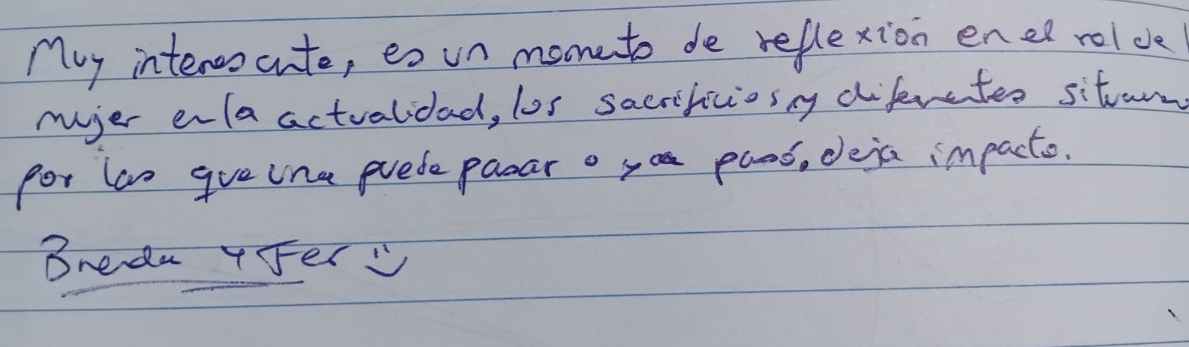 Muy interesante, es un momento de reflexión en el rol de l
mujer en la actualidad, los sacrificios y diferentes situacion
por las que una puede pasar o ya pasó, deja impacto.
Brenda y Fer :)